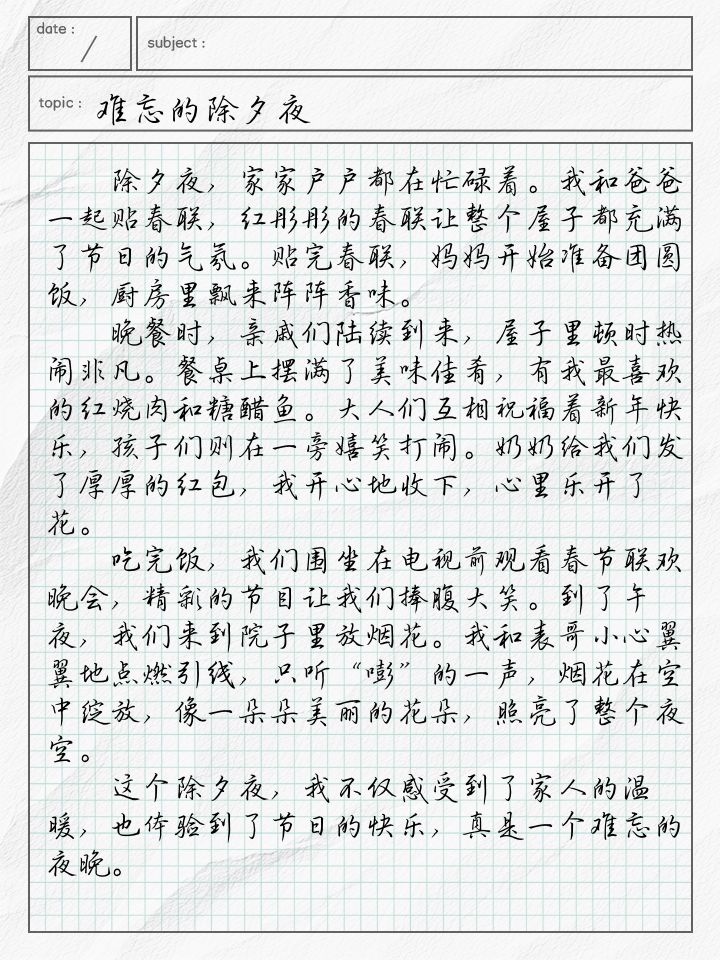 date :
/
subject :
topic : 难忘的除夕夜
除夕夜，家家户户都在忙碌着。我和爸爸
一起贴春联，红彤彤的春联让整个屋子都充满
了节日的气氛。贴完春联，妈妈开始准备团圆
饭，厨房里飘来阵阵香味。
晚餐时，亲戚们陆续到来，屋子里顿时热
闹非凡。餐桌上摆满了美味佳肴，有我最喜欢
的红烧肉和糖醋鱼。大人们互相祝福着新年快
乐，孩子们则在一旁嬉笑打闹。奶奶给我们发
了厚厚的红包，我开心地收下，心里乐开了
花。
吃完饭，我们围坐在电视前观看春节联欢
晚会，精彩的节目让我们捧腹大笑。到了午
夜，我们来到院子里放烟花。我和表哥小心翼
翼地点燃引线，只听“嘭”的一声，烟花在空
中绽放，像一朵朵美丽的花朵，照亮了整个夜
空。
这个除夕夜，我不仅感受到了家人的温
暖，也体验到了节日的快乐，真是一个难忘的
夜晚。